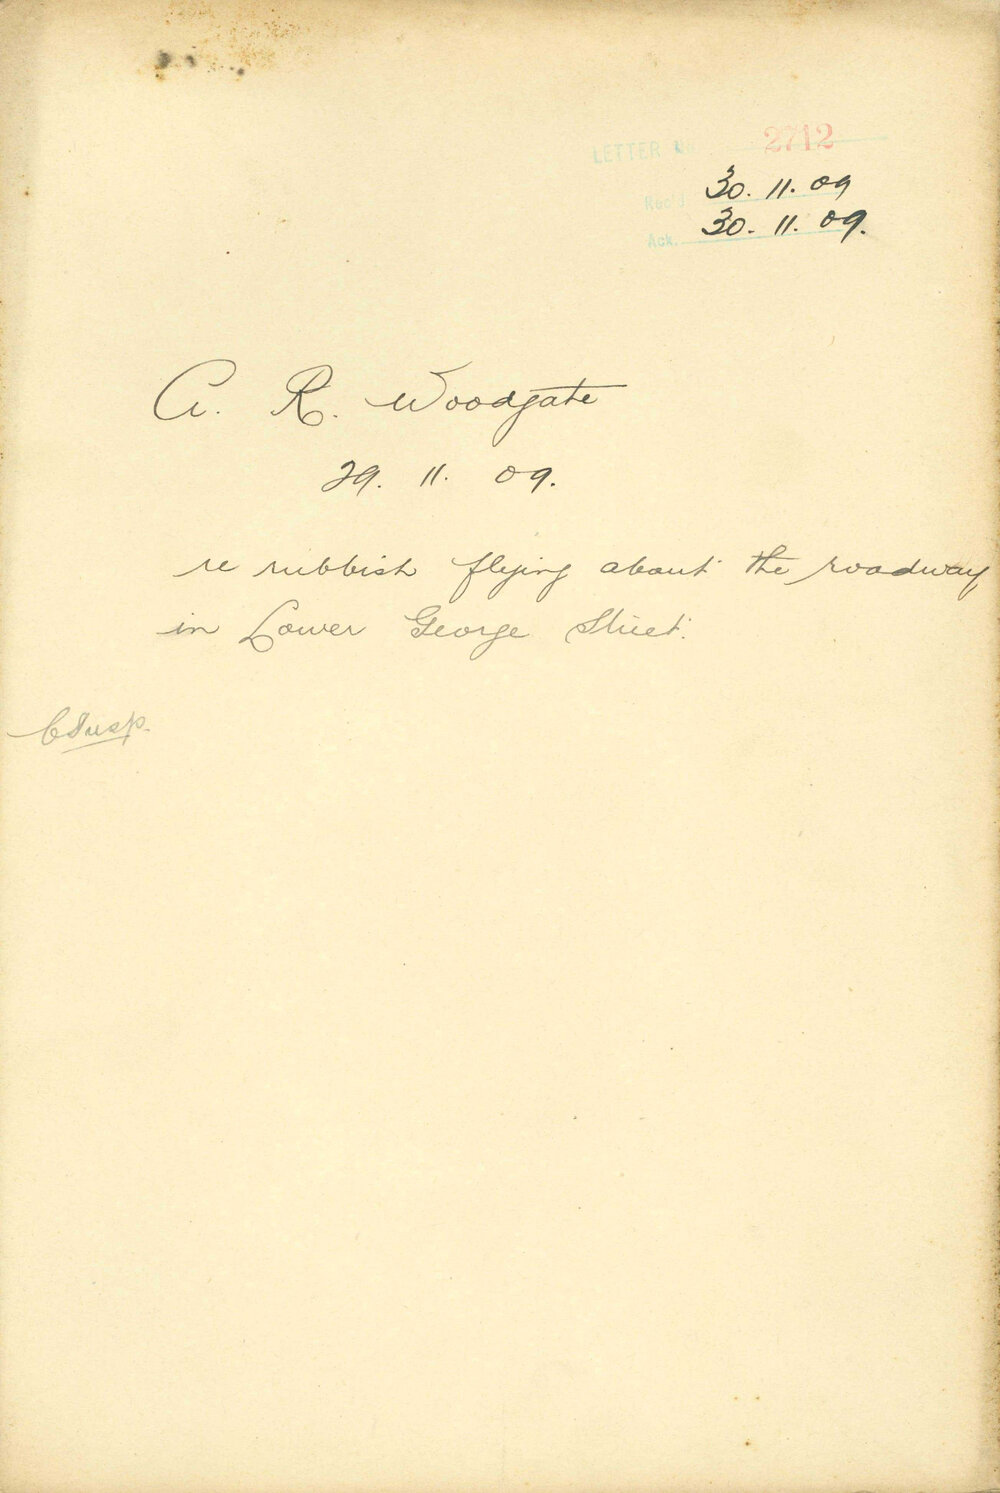 LETTER No 2712
Rec'd 30.11.09
Ack. 30.11.09.
A. R. Woodgate
29. 11. 09.
re rubbish flying about the roadway
in Lower George Street.